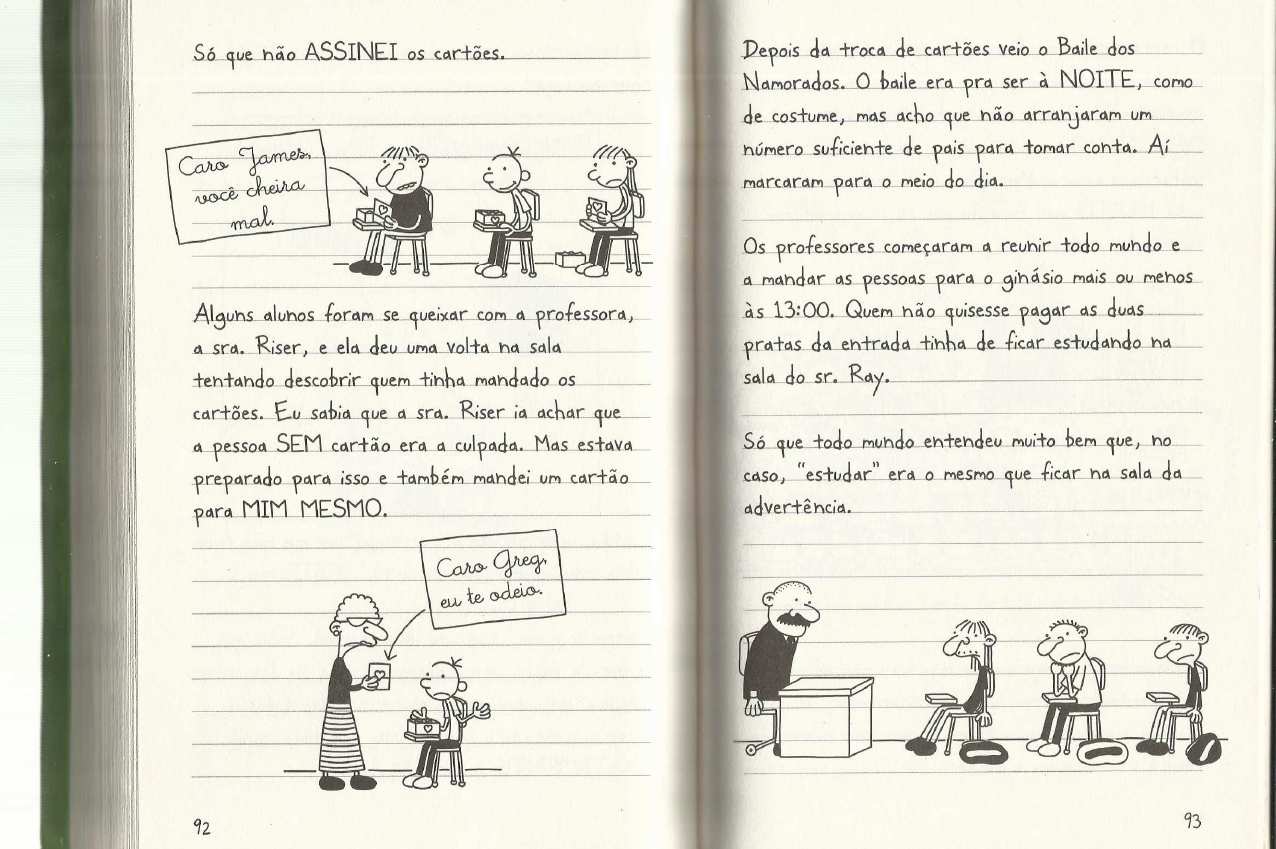 Só que não ASSINEI os cartões.
Caro James,
você cheira
mal.
Alguns alunos foram se queixar com a professora,
a sra. Riser, e ela deu uma volta na sala
tentando descobrir quem tinha mandado os
cartões. Eu sabia que a sra. Riser ia achar que
a pessoa SEM cartão era a culpada. Mas estava
preparado para isso e também mandei um cartão
para MIM MESMO.
Caro Greg,
eu te odeio.
92
Depois da troca de cartões veio o Baile dos
Namorados. O baile era pra ser à NOITE, como
de costume, mas acho que não arranjaram um
número suficiente de pais para tomar conta. Aí
marcaram para o meio do dia.
Os professores começaram a reunir todo mundo e
a mandar as pessoas para o ginásio mais ou menos
às 13:00. Quem não quisesse pagar as duas
pratas da entrada tinha de ficar estudando na
sala do sr. Ray.
Só que todo mundo entendeu muito bem que, no
caso, "estudar" era o mesmo que ficar na sala da
advertência.
93